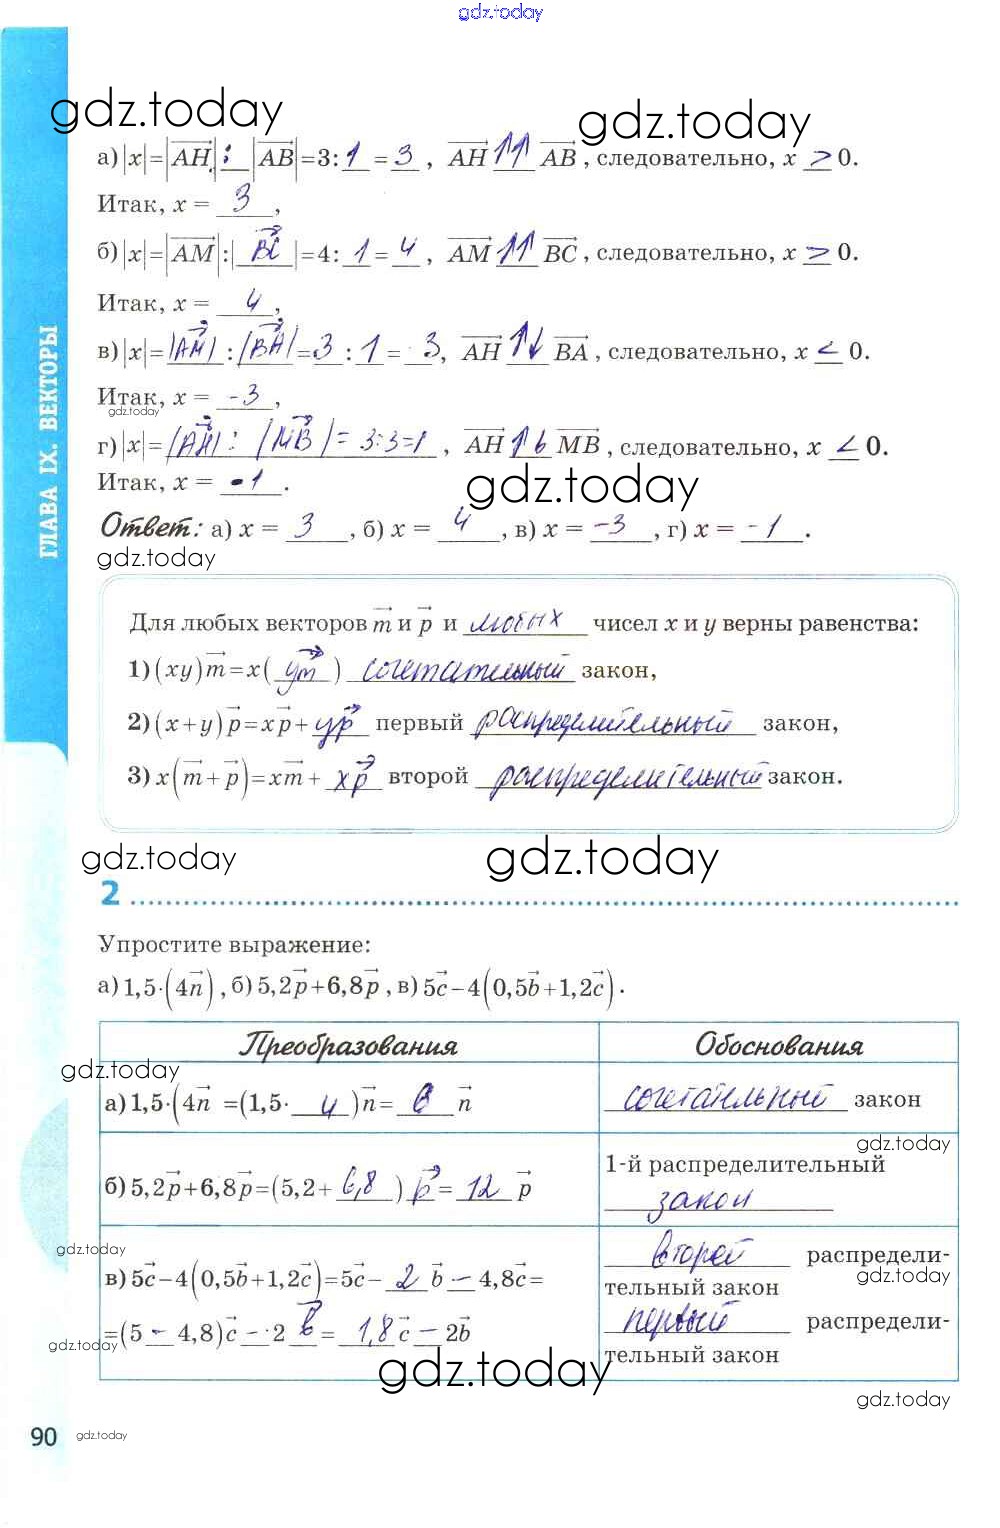 gdz.today
gdz.today
gdz.today
а) |x|=|AH| : |AB|=3: 1 = 3 , AH ↑↑ AB , следовательно, x > 0.
Итак, x = 3 ,
б) |x|=|AM|:| BC |=4: 1 = 4 , AM ↑↑ BC , следовательно, x > 0.
Итак, x = 4 ,
в) |x|= |AM| : |BA| = 3 : 1 = 3, AH ↑↓ BA , следовательно, x < 0.
Итак, x = -3 ,
gdz.today
г) |x|= |AH| : |MB| = 3:3=1 , AH ↑↓ MB , следовательно, x < 0.
Итак, x = -1 .
gdz.today
Ответ: а) x = 3 , б) x = 4 , в) x = -3 , г) x = -1 .
gdz.today
ГЛАВА IX. ВЕКТОРЫ
Для любых векторов m и p и любых чисел x и y верны равенства:
1) (xy)m=x( ym ) сочетательный закон,
2) (x+y)p=xp+ yp первый распределительный закон,
3) x(m+p)=xm+ xp второй распределительный закон.
gdz.today
gdz.today
2
Упростите выражение:
а) 1,5·(4n) , б) 5,2p+6,8p , в) 5c−4(0,5b+1,2c) .
Преобразования Обоснования
gdz.today
а) 1,5·(4n =(1,5· 4 )n= 6 n сочетательный закон
gdz.today
б) 5,2p+6,8p=(5,2+ 6,8 ) p = 12 p 1-й распределительный
закон
gdz.today
в) 5c−4(0,5b+1,2c)=5c− 2 b − 4,8c= второй распредели-
тельный закон
gdz.today
=(5 − 4,8)c − 2 b = 1,8 c − 2b первый распредели-
тельный закон
gdz.today
gdz.today
gdz.today
90 gdz.today